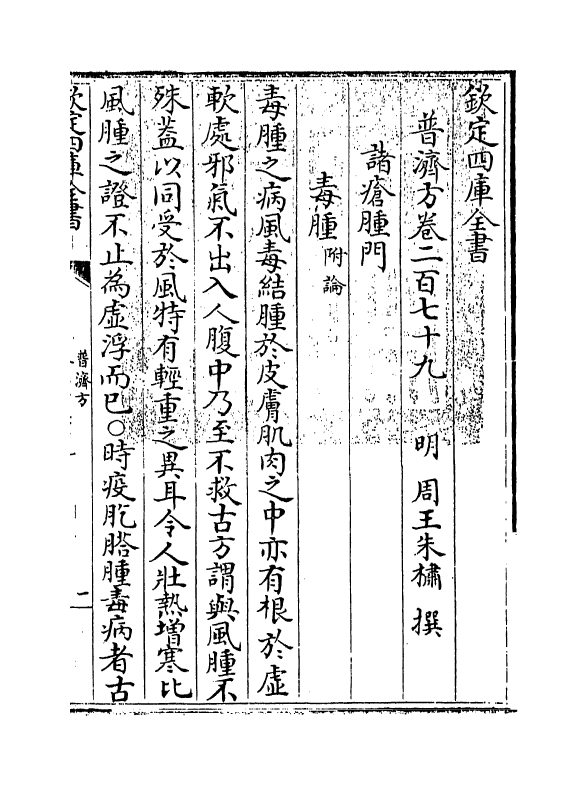 欽定四庫全書
普濟方卷二百七十九 明 周王朱橚 撰
諸瘡腫門
毒腫附論
毒腫之病風毒結腫於皮膚肌肉之中亦有根於虛
軟處邪氣不出入人腹中乃至不救古方謂與風腫不
殊葢以同受於風特有輕重之異耳令人壯熱增寒比
風腫之證不止為虛浮而已○時疫肐膯腫毒病者古
欽定四庫全書
普濟方
二